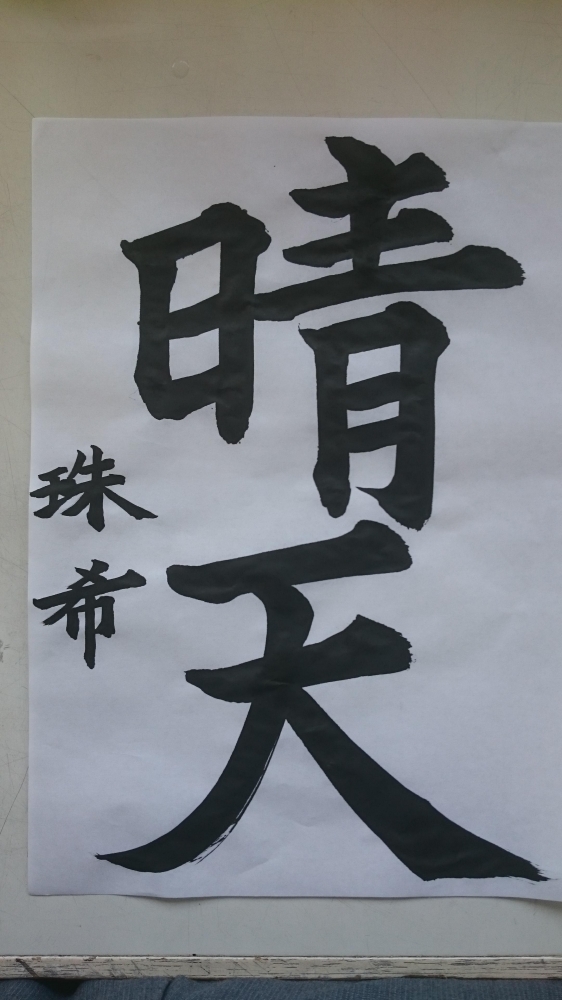 晴天
珠希